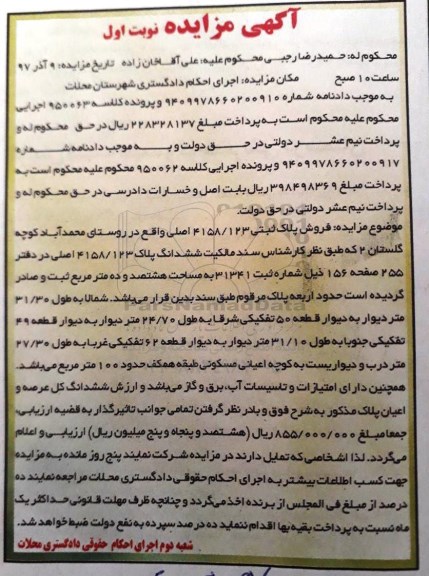 آگهی مزایده نوبت اول
محکوم له: حمیدرضا رجبی محکوم علیه: علی آقاخان زاده تاریخ مزایده: ۹ آذر ۹۷
ساعت ۱۰ صبح مکان مزایده: اجرای احکام دادگستری شهرستان محلات
به موجب دادنامه شماره ۹۴۰۹۹۷۸۶۶۰۲۰۰۹۱۰ و پرونده کلاسه ۹۵۰۰۶۳ اجرایی
محکوم علیه محکوم است به پرداخت مبلغ ۲۲۸۳۲۸۱۳۷ ریال در حق محکوم له و
پرداخت نیم عشر دولتی در حق دولت و به موجب دادنامه شماره
۹۴۰۹۹۷۸۶۶۰۲۰۰۹۱۷ و پرونده اجرایی کلاسه ۹۵۰۰۶۲ محکوم علیه محکوم است به
پرداخت مبلغ ۳۹۸۴۹۸۳۶۹ ریال بابت اصل و خسارات دادرسی در حق محکوم له و
پرداخت نیم عشر دولتی در حق دولت
موضوع مزایده: فروش پلاک ثبتی ۴۱۵۸/۱۲۳ اصلی واقع در روستای محمدآباد کوچه
گلستان ۲ که طبق نظر کارشناس سند مالکیت ششدانگ پلاک ۴۱۵۸/۱۲۳ اصلی در دفتر
۲۵۵ صفحه ۱۵۶ ذیل شماره ثبت ۳۱۳۴۱ به مساحت هشتصد و ده متر مربع ثبت و صادر
گردیده است حدود اربعه پلاک مرقوم طبق سند بدین قرار می‌باشد. شمالا به طول ۳۱/۳۰
متر دیوار به دیوار قطعه ۵۰ تفکیکی شرقا به طول ۲۴/۷۰ متر دیوار به دیوار قطعه ۴۹
تفکیکی جنوبا به طول ۳۱/۱۰ متر دیوار به دیوار قطعه ۶۲ تفکیکی غربا به طول ۲۷/۳۰
متر درب و دیواریست به کوچه اعیانی مسکونی طبقه همکف حدود ۱۰۰ متر مربع می‌باشد.
همچنین دارای امتیازات و تاسیسات آب، برق و گاز می‌باشد و ارزش ششدانگ کل عرصه و
اعیان پلاک مذکور به شرح فوق و بادر نظر گرفتن تمامی جوانب تاثیرگذار به قضیه ارزیابی،
جمعا مبلغ ۸۵۵/۰۰۰/۰۰۰ ریال (هشتصد و پنجاه و پنج میلیون ریال) ارزیابی و اعلام
می‌گردد. لذا اشخاصی که تمایل دارند در مزایده شرکت نمایند پنج روز مانده به مزایده
جهت کسب اطلاعات بیشتر به اجرای احکام حقوقی دادگستری محلات مراجعه نمایند ده
درصد از مبلغ فی المجلس از برنده اخذ می‌گردد و چنانچه ظرف مهلت قانونی حداکثر یک
ماه نسبت به پرداخت بقیه بها اقدام ننماید ده درصد سپرده به نفع دولت ضبط خواهد شد.
شعبه دوم اجرای احکام حقوقی دادگستری محلات